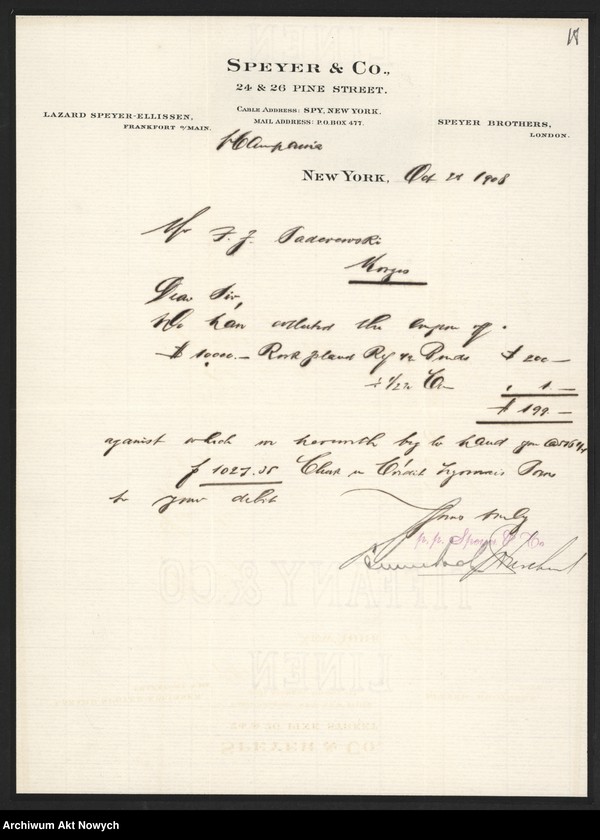 18
SPEYER & CO.,
24 & 26 PINE STREET.
CABLE ADDRESS: SPY, NEW YORK.
MAIL ADDRESS: P.O. BOX 477.
LAZARD SPEYER-ELLISSEN,
FRANKFORT o/MAIN.
SPEYER BROTHERS,
LONDON.
NEW YORK, Oct 1908
Mr Paderewski
Morges
Dear Sir,
We have collected the coupon of
$ 10000.- Rock Island Rfg 4% Bonds $ 200.-
½% 1.-
$ 199.-
against which we herewith beg to hand you
Check on Crédit Lyonnais Paris
to your debit
Yours truly
p.p. Speyer & Co.
TIFFANY & CO
LINEN
Archiwum Akt Nowych